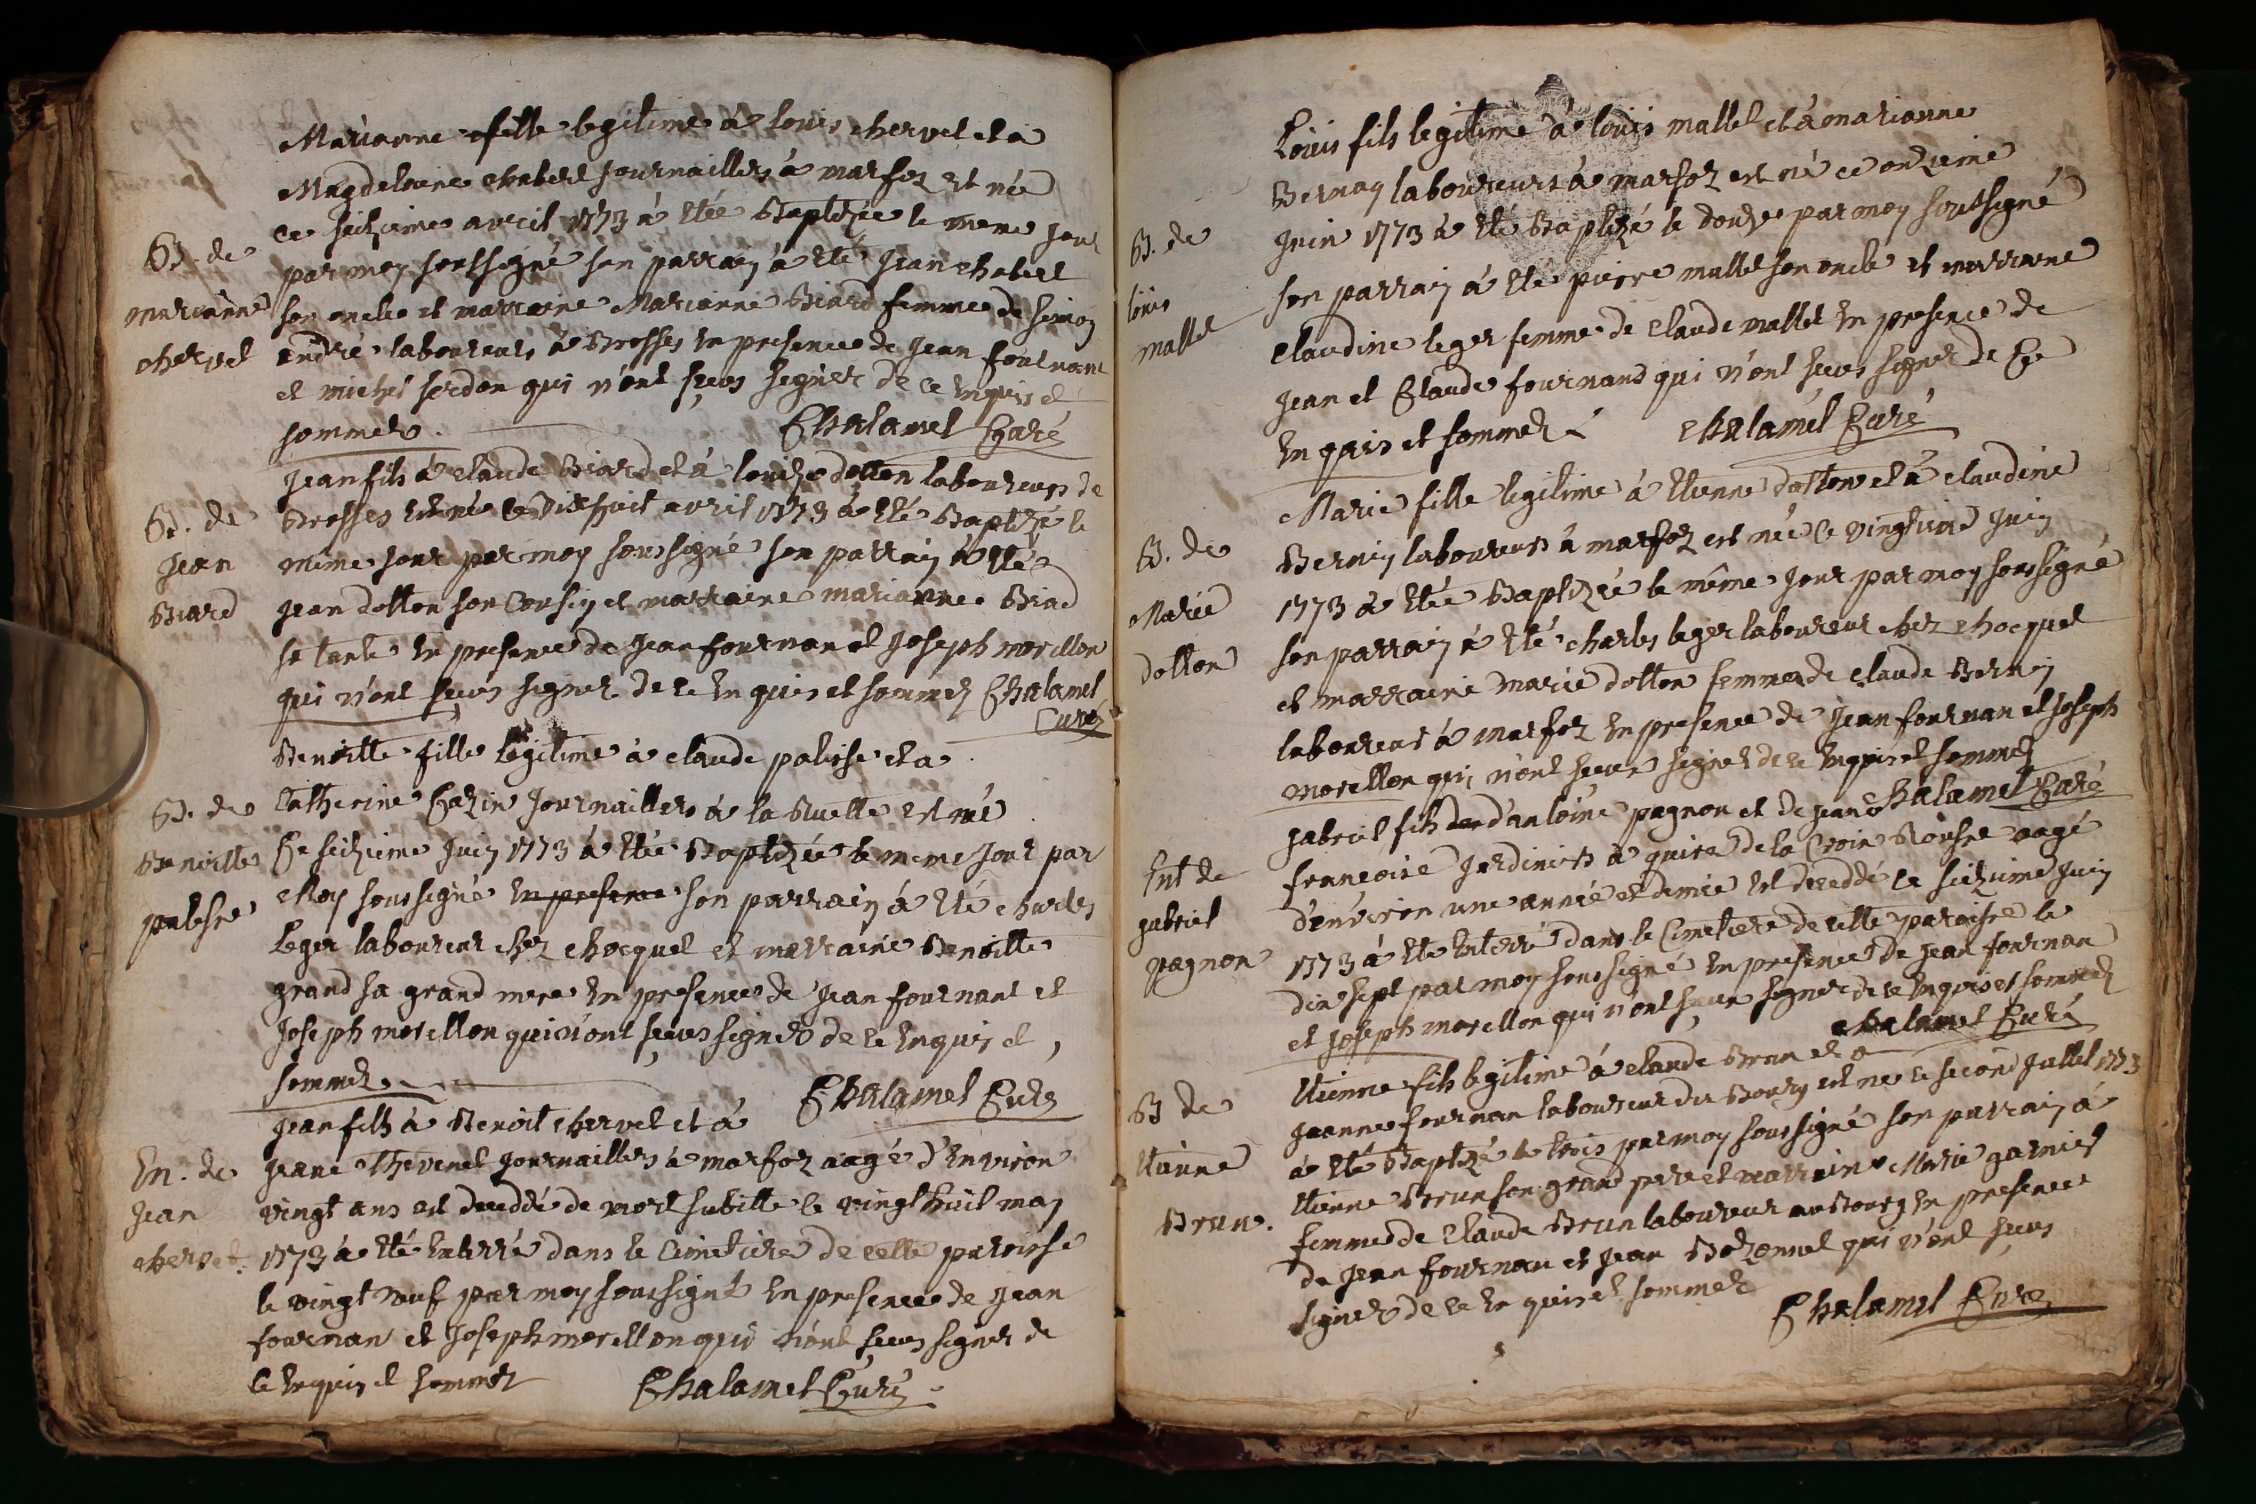 Marianne fille legitime à louis chervet et à
Magdelaine chabert Journaillers à marfoz est née
ce seizieme avril 1773 à été Baptizée le meme jour
B. de
par moy soussigné son parrain à été Jean chabert
marianne
son oncle et marraine Marianne Biard femme de simon
chervet
andré laboureurs à Brosses en presence de Jean fournant
et michel serdon qui n'ont sceus signer de ce enquis et
sommez. Chalamel Curé
Jean fils à claude Biard et à louize dotton laboureurs de
B. de
Brosses est né le Dixhuit avril 1773 à été Baptizé le
Jean
même jour par moy soussigné son parrain à été
Biard
Jean dotton son Cousin et marraine marianne Biad
sa tante en presence de Jean fournan et Joseph morellon
qui n'ont sceus signer de ce enquis et sommez Chalamel
Curé
Benoitte fille legitime à claude palisse et a
B. de
Catherine Carin Journaillers à la Buette est né
Benoitte
Ce seizieme Juin 1773 à été Baptizée le meme Jour par
palisse
Moy soussigné en presence son parrain à été charles
Leger laboureur chez chocquet et marraine Benoitte
grand sa grand mere en presence de Jean fournant et
Joseph morellon qui n'ont sceus signer de ce enquis et
sommez. Chalamel Curé
Jean fils à Benoit chervet et à
En. de
Jeane Thevenet Journaillers à marfoz aagé d'Environ
Jean
vingt ans est deceddé de mort subitte le vingt huit may
chervet.
1773 à été Enterré dans le Cimetiere de cette paroisse
le vingt neuf par moy soussigné en presence de Jean
fournan et Joseph morellon qui n'ont sceus signer de
ce enquis et sommez Chalamel Curé
Louis fils legitime à louis mallet et à marianne
Bernay laboureurs à marfoz est né ce onzieme
B. de
Juin 1773 à été Baptizé le douze par moy soussigné
louis
son parrain à été pierre mallet son oncle et marraine
mallet
Claudine leger femme de Claude mallet en presence de
Jean et Claude fournand qui n'ont sceus signer de Ce
En quis et sommez Chalamel Curé
Marie fille legitime à Etienne dotton et à claudine
B. de
Bernin laboureurs à marfoz est née le vingtune Juin
Marie
1773 à été Baptizée le même Jour par moy soussigné
dotton
son parrain à été charles leger laboureur chez chocquet
et marraine Marie dotton femme de claude Bernin
laboureur à marfoz en presence de Jean fournan et Joseph
morellon qui n'ont sceus signer de ce enquis et sommez
Chalamel Curé
Ent de
gabriel fils d'antoine pagnon et de Jeane
gabriel
francoise Jardiniers à quire de la Croix Rousse aagé
pagnon
d'environ une année et demie est deceddé le seizieme Juin
1773 à été Enterré dans le Cimetiere de cette paroisse le
dix sept par moy soussigné en presence de Jean fournan
et Joseph morellon qui n'ont sceus signer de ce enquis et sommez
Chalamel Curé
Etienne fils legitime à claude Brun et a
B de
Jeanne fournan laboureur du Bourg est né le second Jullet 1773
Etienne
à été Baptizé le trois par moy soussigné son parrain à
Brun.
Etienne Brun son grand pere et marraine Marie garnier
femme de Claude Brun laboureur au Bourg en presence
de Jean fournan et Jean Bozonnet qui n'ont sceus
signer de ce en quis et sommez
Chalamel Curé